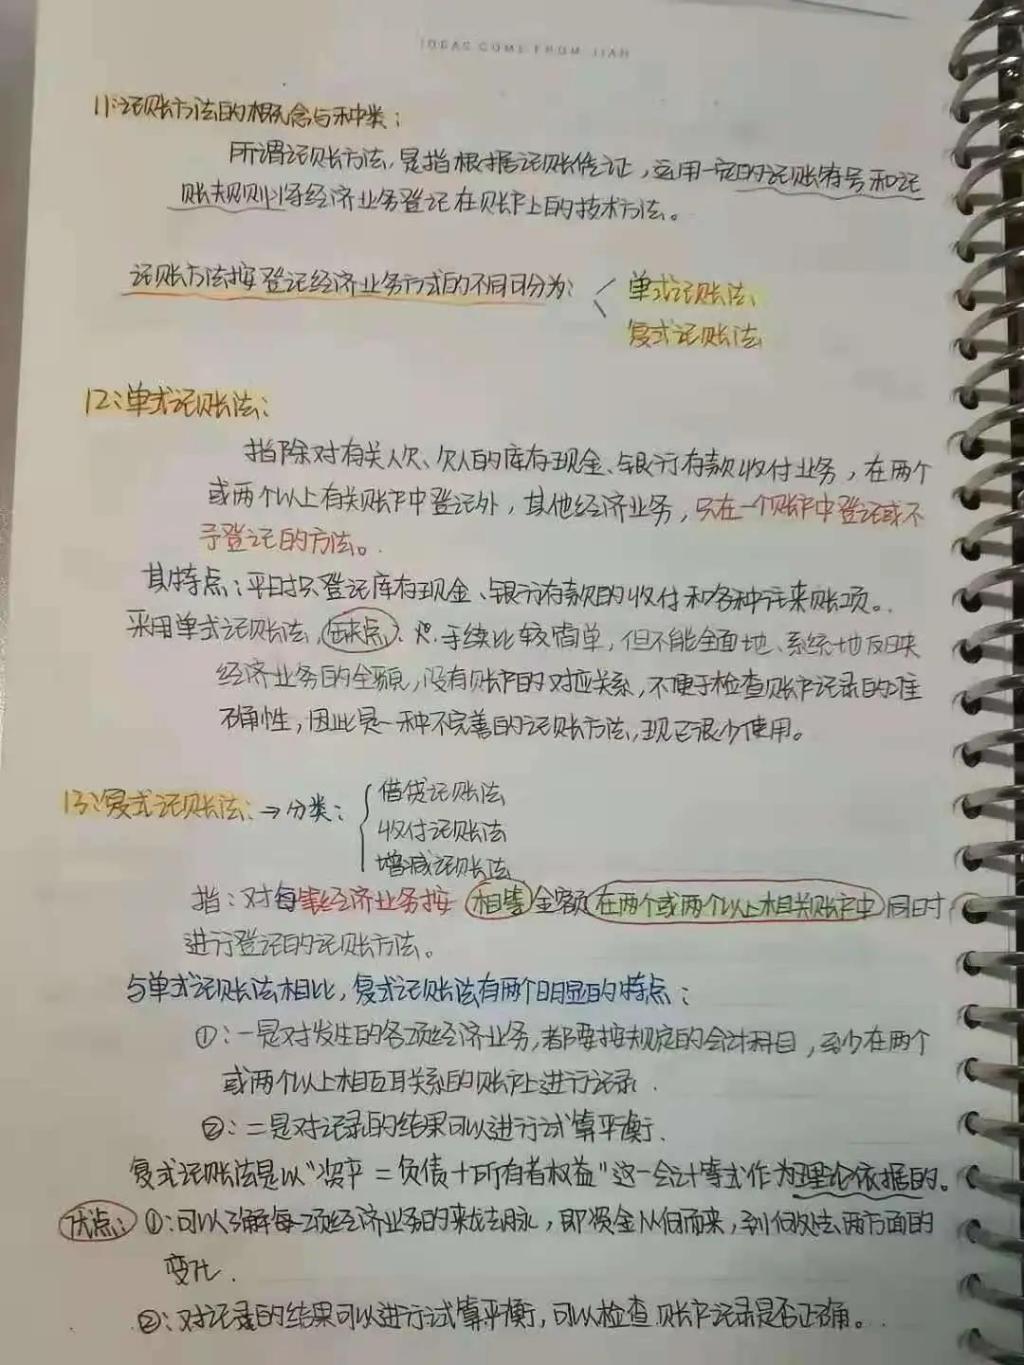 IDEAS COME FROM JIAN
11:记账方法的概念与种类:
所谓记账方法,是指根据记账凭证,运用一定的记账符号和记
账规则将经济业务登记在账户上的技术方法。
记账方法按登记经济业务方式的不同可分为:
单式记账法
复式记账法
12:单式记账法:
指除对有关人欠、欠人的库存现金、银行存款收付业务,在两个
或两个以上有关账户中登记外,其他经济业务,只在一个账户中登记或不
予登记的方法。
其特点:平时只登记库存现金、银行存款的收付和各种往来账项。
采用单式记账法,缺点: 手续比较简单,但不能全面地、系统地反映
经济业务的全貌,没有账户的对应关系,不便于检查账户记录的准
确性,因此是一种不完善的记账方法,现已很少使用。
13:复式记账法:→分类:
借贷记账法
收付记账法
增减记账法
指:对每笔经济业务按相等金额在两个或两个以上相关账户中同时
进行登记的记账方法。
与单式记账法相比,复式记账法有两个明显的特点:
①:一是对发生的各项经济业务,都要按规定的会计科目,至少在两个
或两个以上相互关系的账户上进行记录.
②:二是对记录的结果可以进行试算平衡.
复式记账法是以“资产=负债+所有者权益”这一会计等式作为理论依据的。
优点:①:可以了解每一项经济业务的来龙去脉,即资金从何而来,到何处去、两方面的
变化.
②:对记录的结果可以进行试算平衡,可以检查账户记录是否正确。